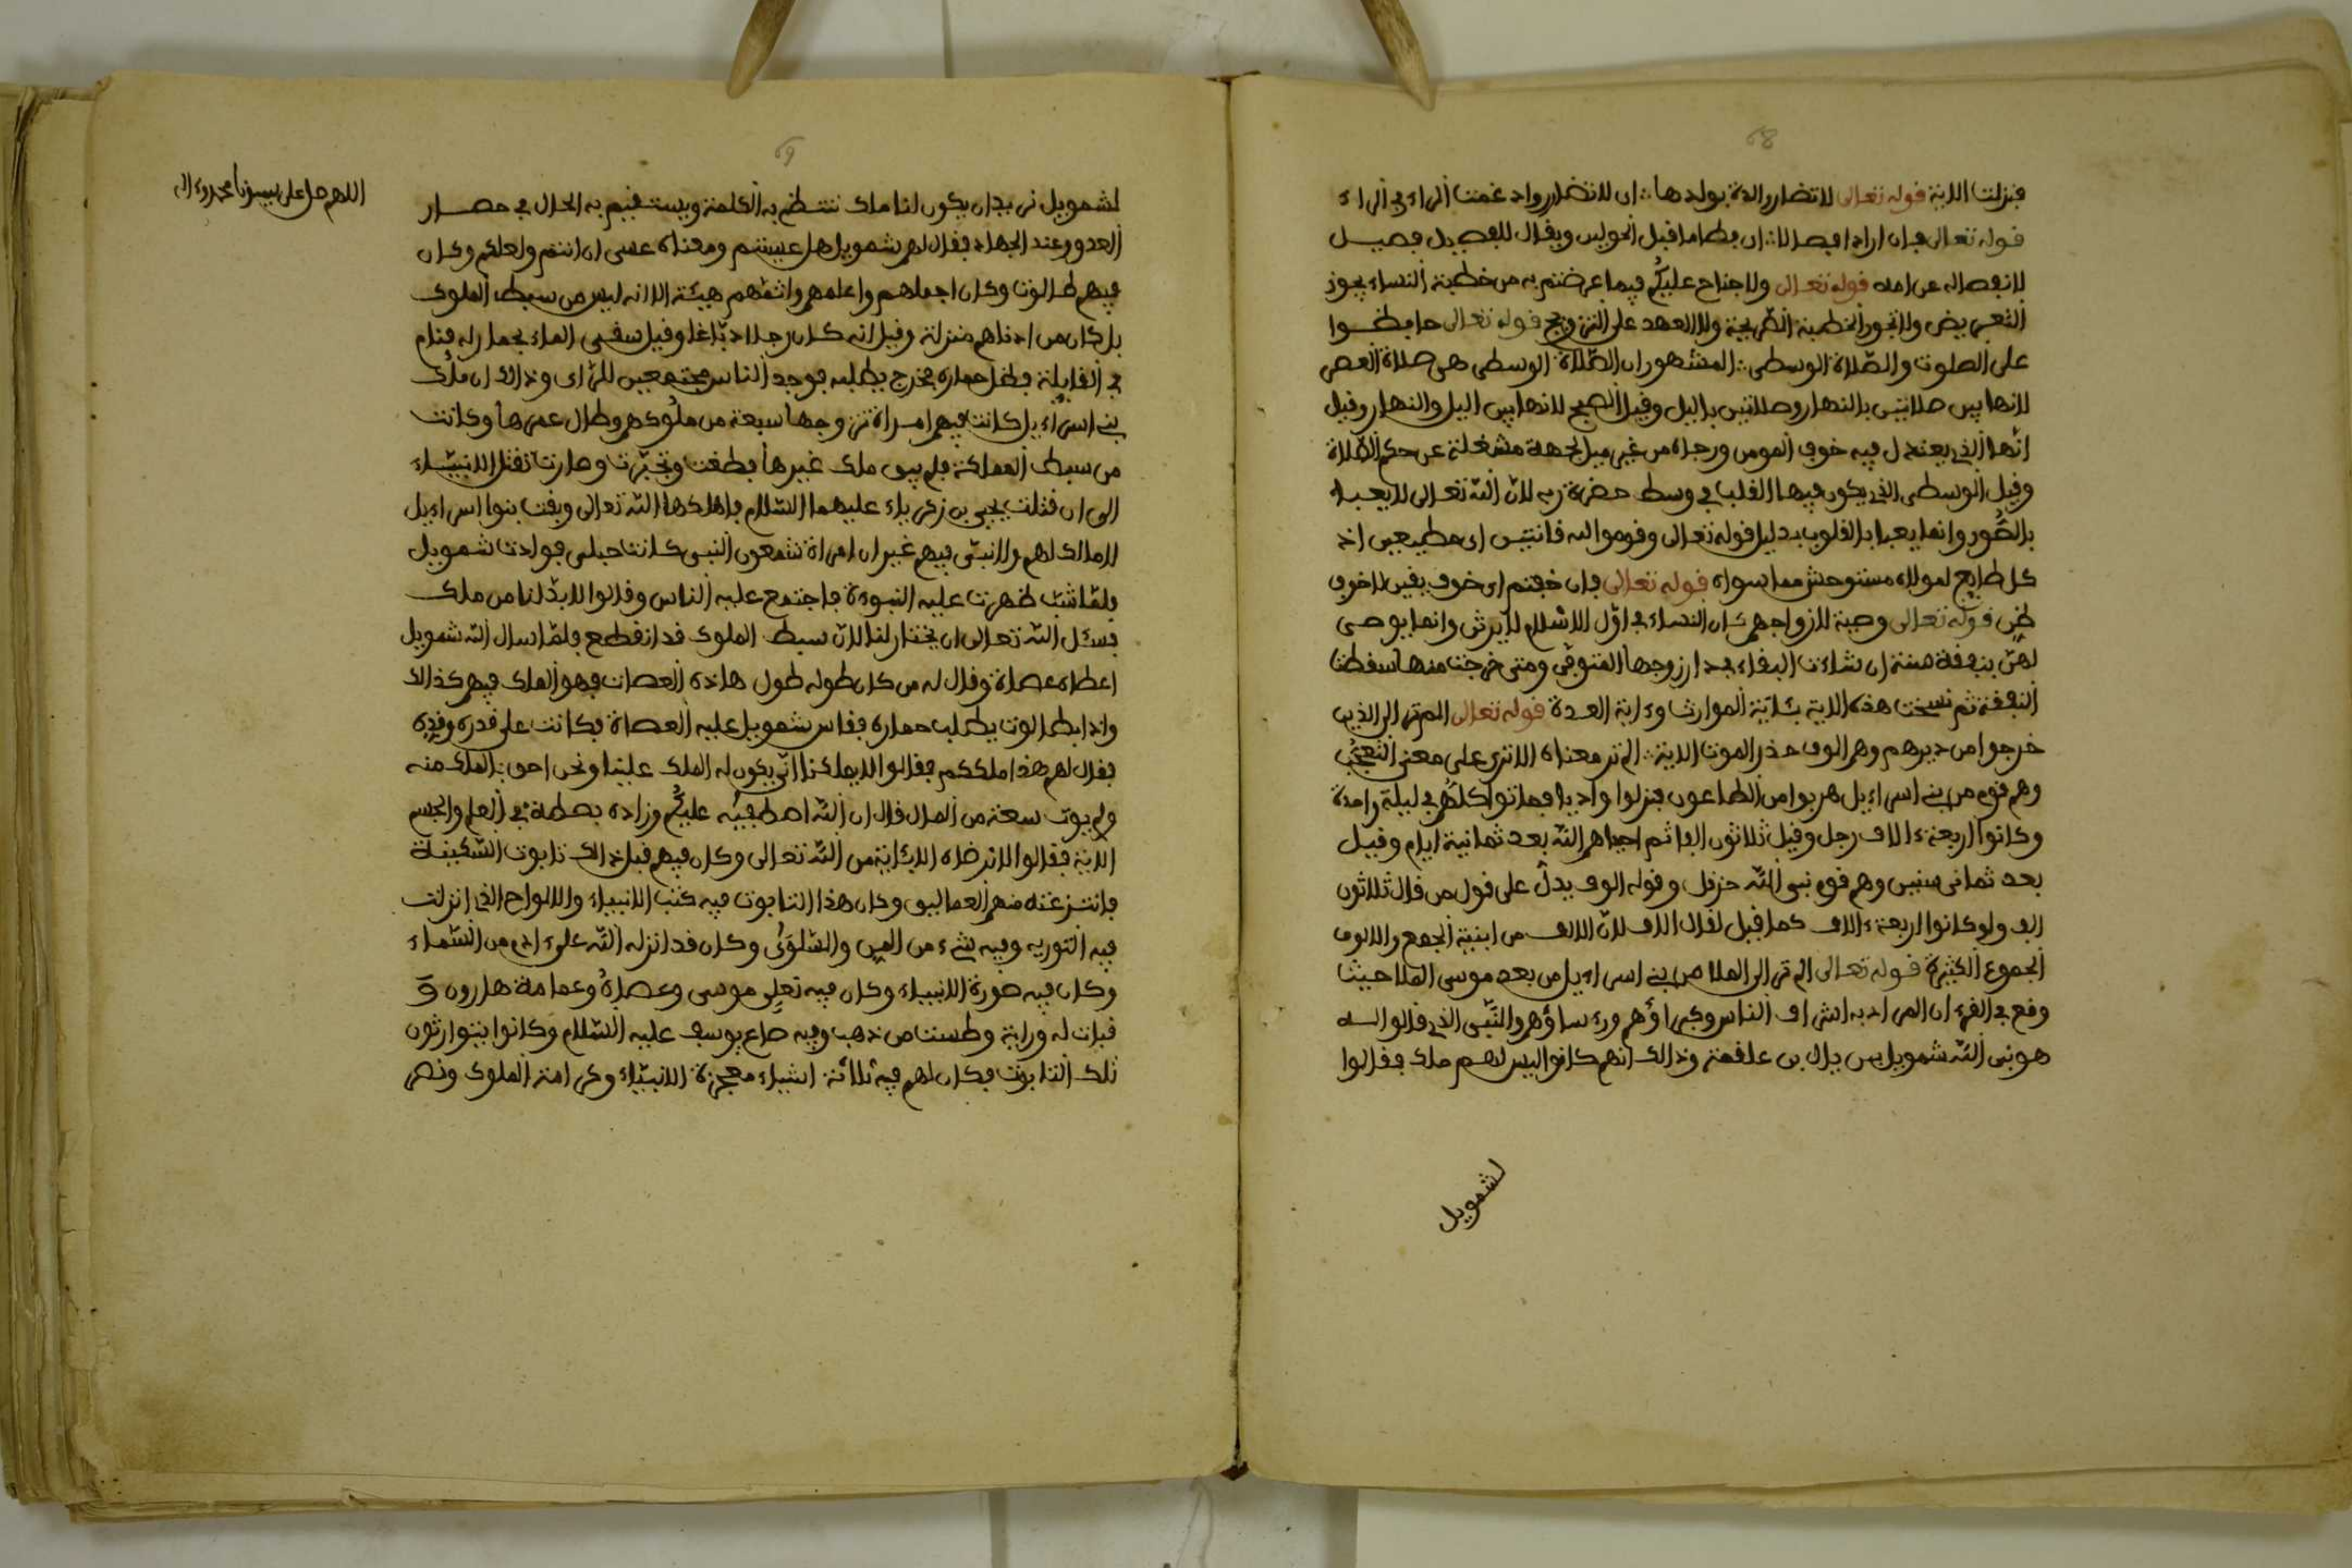 68
فنزلت الاية قوله تعالى لا تضار والدة بولدها ∴ ان لا تضارر وادغمت الراء في الراء
قوله تعالى فان ارادا فصالا ∴ ان فطاما قبل الحولين ويقال للفصيل فصيل
لانفصاله عن امه قوله تعالى ولا جناح عليكم فيما عرضتم به من خطبة النساء يجوز
التعريض ولا تجوز الخطبة الصريحة ولا العهد على التزويج قوله تعالى حافظوا
على الصلوت والصّلاة الوسطى ∴ المشهور ان الصّلاة الوسطى هي صلاة العصر
لانها بين صلاتين بالنهار وصلاتين باليل وقيل الصبح لانها بين اليل والنهار وقيل
انها الذي يعتدل فيه خوف المومن ورجاه من غير ميل لجهة مشغلة عن حكم الصّلاة
وقيل الوسطى التي يكون فيها القلب في وسط حضرة ربه لانّ اللّه تعالى لا يعبد
بالصُّور وانما يعبد بالقلوب بدليل قوله تعالى وقوموا لله قانتين اى مطيعين اذ
كل طايع لمولاه مستوحش مما سواه قوله تعالى فان خفتم اى خوف يقين لا خوف
ظن قوله تعالى وصية لازواجهم كان النساء في اوّل الاسْلام لا يرثن وانما يوصى
لهنّ بنفقة سنة ان شاءت البقاء بدار زوجها المتوفّى ومتى خرجت منها سقطت
النفقة ثم نسخت هذه الاية بئاية الموارث وءاية العدة قوله تعالى الم تر الى الذين
خرجوا من ديرهم وهم الوف حذر الموت الاية ∴ الم تر معناه الا ترى على معنى التعجّب
وهم قوم من بني اسراءيل هربوا من الطاعون فنزلوا واديا فماتوا كلّهم في ليلة واحدة
وكانوا اربعة ءالاف رجل وقيل ثلاثون الفا ثم احياهم اللّه بعد ثمانية ايام وقيل
بعد ثماني سنين وهم قوم نبي اللّه حزقل وقوله الوف يدلّ على قول من قال ثلاثون
الف ولو كانوا اربعة ءالاف كما قيل لقال الاف لانّ الالف من ابنية الجمع والالوف
الجموع الكثيرة قوله تعالى الم تر الى الملا من بني اسراءيل من بعد موسى الملا حيث
وقع في القرءان المراد به اشراف الناس وكبراؤهم ورءساؤهم والنّبى الذي قالوا له
هو نبي اللّه شمويل بن يال بن علقمة وذالك انهم كانوا ليس لهم ملك فقالوا
لشمويل
69
لشمويل نريد ان يكون لنا ملك تنتظم به الكلمة ويستقيم به الحال في حصار
العدو وعند الجهاد فقال لهم شمويل هل عسيتم ومعناه عسى ان انتم ولعلكم وكان
فيهم طالوت وكان اجملهم واعلمهم واتمّهم هيئة الا انه ليس من سبط الملوك
بل كان من ادناهم منزلة وقيل انه كان رجلا دبّاغا وقيل سقى الماء بحمار له فنام
في القايلة فضل حماره فخرج يطلبه فوجد الناس مجتمعين للرّاى وذالك ان ملك
بني اسراءيل كانت فيهم امراة تزوجها سبعة من ملوكهم وطال عمرها وكانت
من سبط المملكة فلم يبق ملك غيرها فطغت وتجبّرت وصارت تقتل الانبيّاء
الى ان قتلت يحيى بن زكرياء عليهما السّلام فاهلكها اللّه تعالى وبقت بنوا اسراءيل
لا مالك لهم ولا نبيّ فيهم غير ان امراة شمعون النبى كانت حبلى فولدت شمويل
فلمّا شبّ ظهرت عليه النبوءة فاجتمع عليه الناس وقالوا لا بدّ لنا من ملك
فسئل اللّه تعالى ان يختار لنا لانّ سبط الملوك قد انقطع فلمّا سال اللّه شمويل
اعطاه عصاة وقال له من كان طوله طول هاذه العصات فهو الملك فيهم كذالك
واذا بطالوت يطلب حماره فقاس شمويل عليه العصاة فكانت على قدره وقدّه
فقال لهم هذا ملككم فقالوا لا يملكنا انّى يكون له الملك علينا ونحن احق بالملك منه
ولم يوت سعة من المال قال ان اللّه اصطفيه عليكم وزاده بصطة في العلم والجسم
الاية فقالوا لا نرضاه الا بئاية من اللّه تعالى وكان فيهم قبل ذالك تابوت السّكينة
فانتزعته منهم العماليق وكان هذا التابوت فيه كتب الانبياء والالواح التي انزلت
فيه التورية وفيه شيء من المن والسّلوَى وكان قد انزله اللّه على ءادم من السّماء
وكان فيه صورة الانبياء وكان فيه نعلى موسى وعصاه وعمامة هارون و
قبات له وراية وطست من ذهب وفيه صاع يوسف عليه السّلام وكانوا يتوارثون
ذلك التابوت فكان لهم فيه ثلاثة اشياء معجزة الانبيّاء وكرامة الملوك ونصر
اللهم صل على سيدنا محمد وءاله